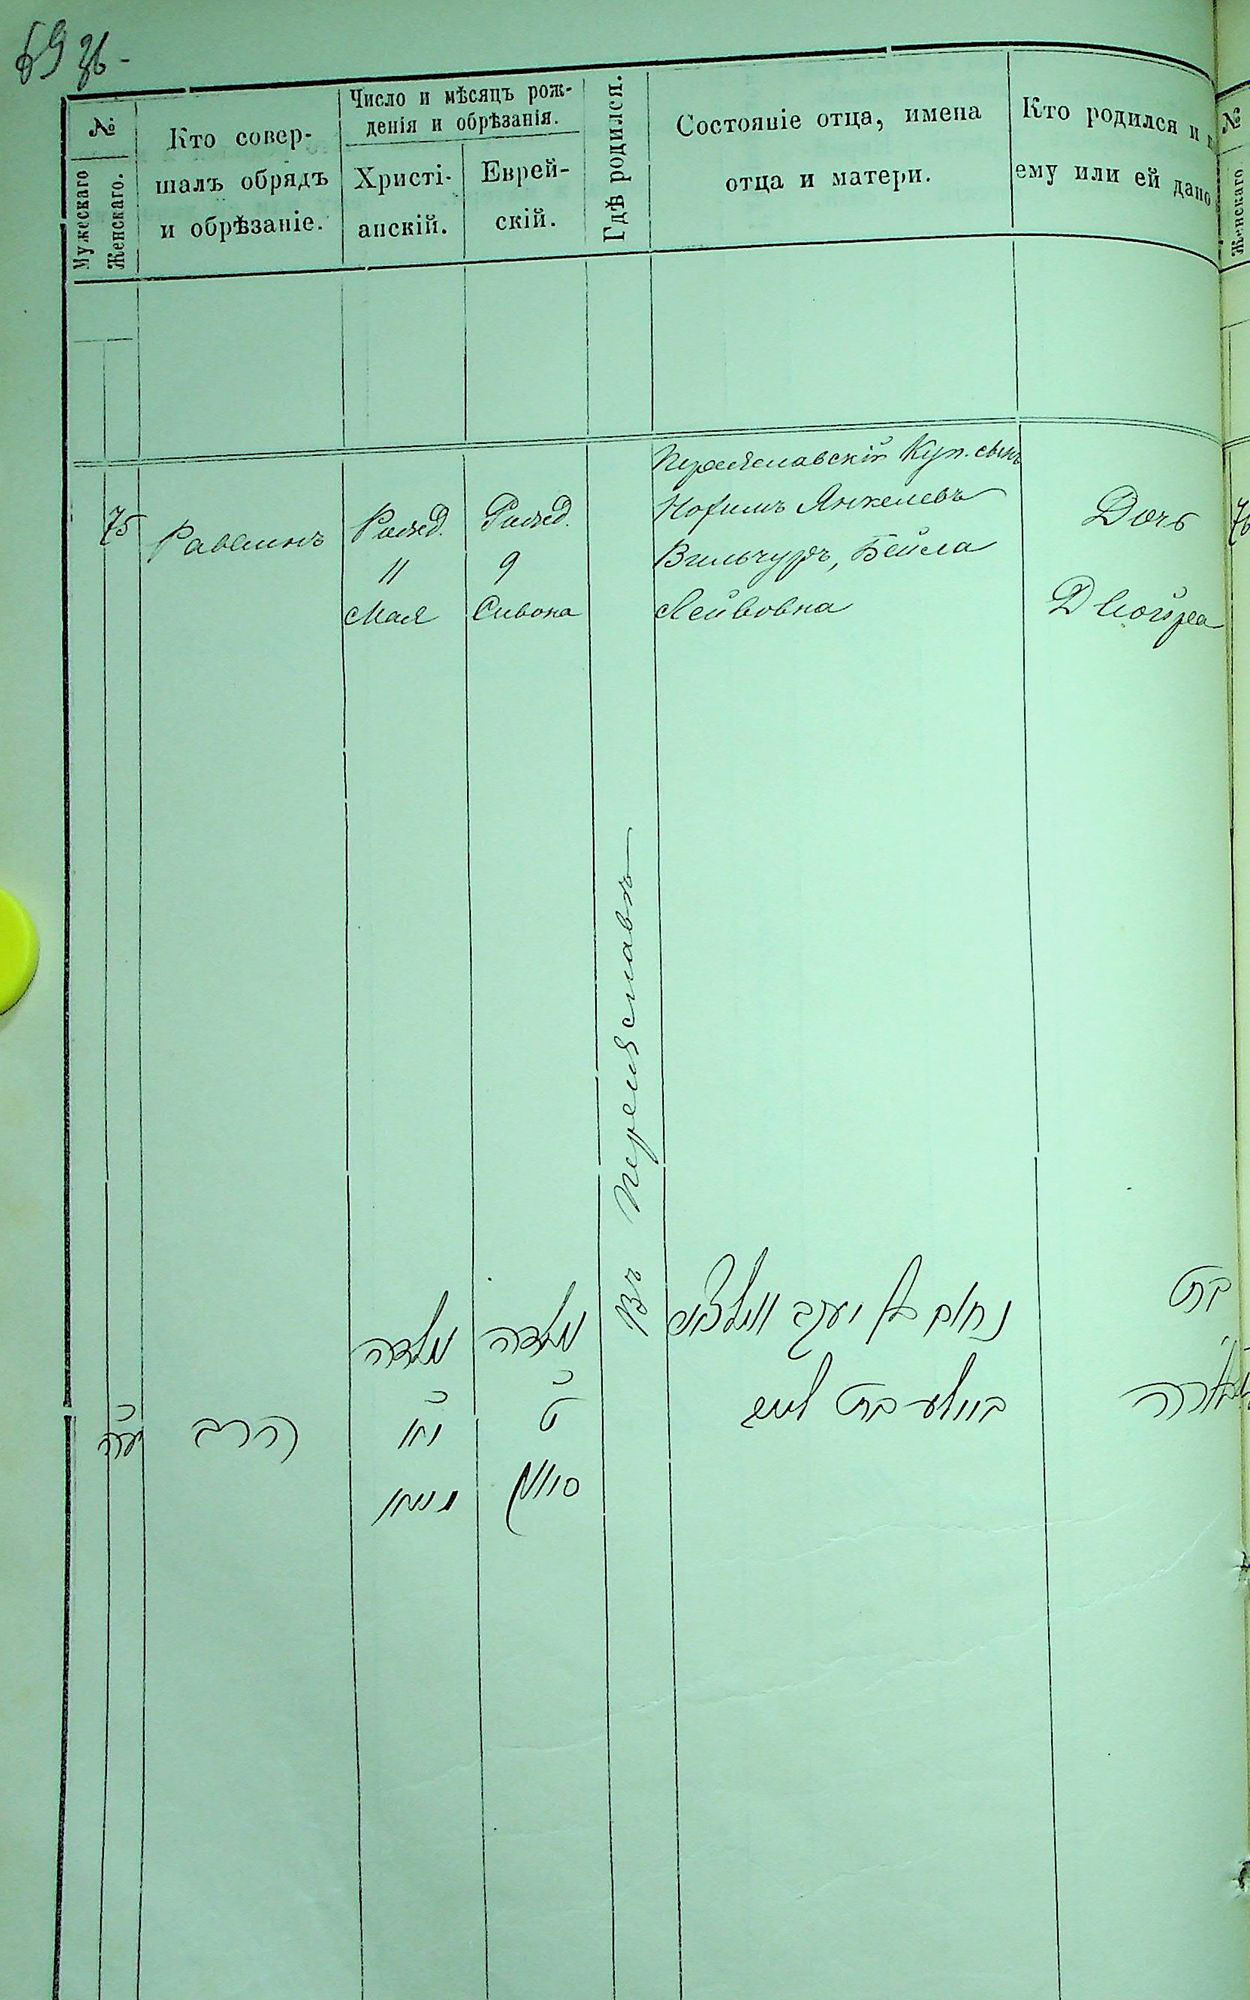 69 зв-
№
Мужескаго
Женскаго.
Кто совер-
шалъ обрядъ
и обрѣзаніе.
Число и мѣсяцъ рож-
денія и обрѣзанія.
Христі-
анскій.
Еврей-
скій.
Гдѣ родился.
Состояніе отца, имена
отца и матери.
Кто родился и
ему или ей дано
№
Женскаго
75
Раввинъ
Рожд.
11
Мая
Рожд.
9
Сивона
Въ Переяславѣ
Переяславскій Куп. сынъ
Нохимъ Янкелевъ
Вильчуръ, Бейла
Лейбовна
Дочь
Двойра
76
עה
הרב
נולדה
יא
מאי
נולדה
ט
סיון
נחום בן יעקב
ביילע בת לייב
בת